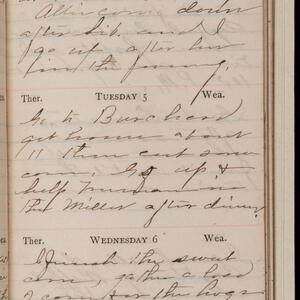 down
after it and I
go up after her
in the evening.
Ther. TUESDAY 5 Wea.
Go to Burchard
get home about
11 then cut some
corn, Go up &
help Truman
the Millet after dinner
Ther. WEDNESDAY 6 Wea.
Finish the sweet
corn, gather a load
for the hogs